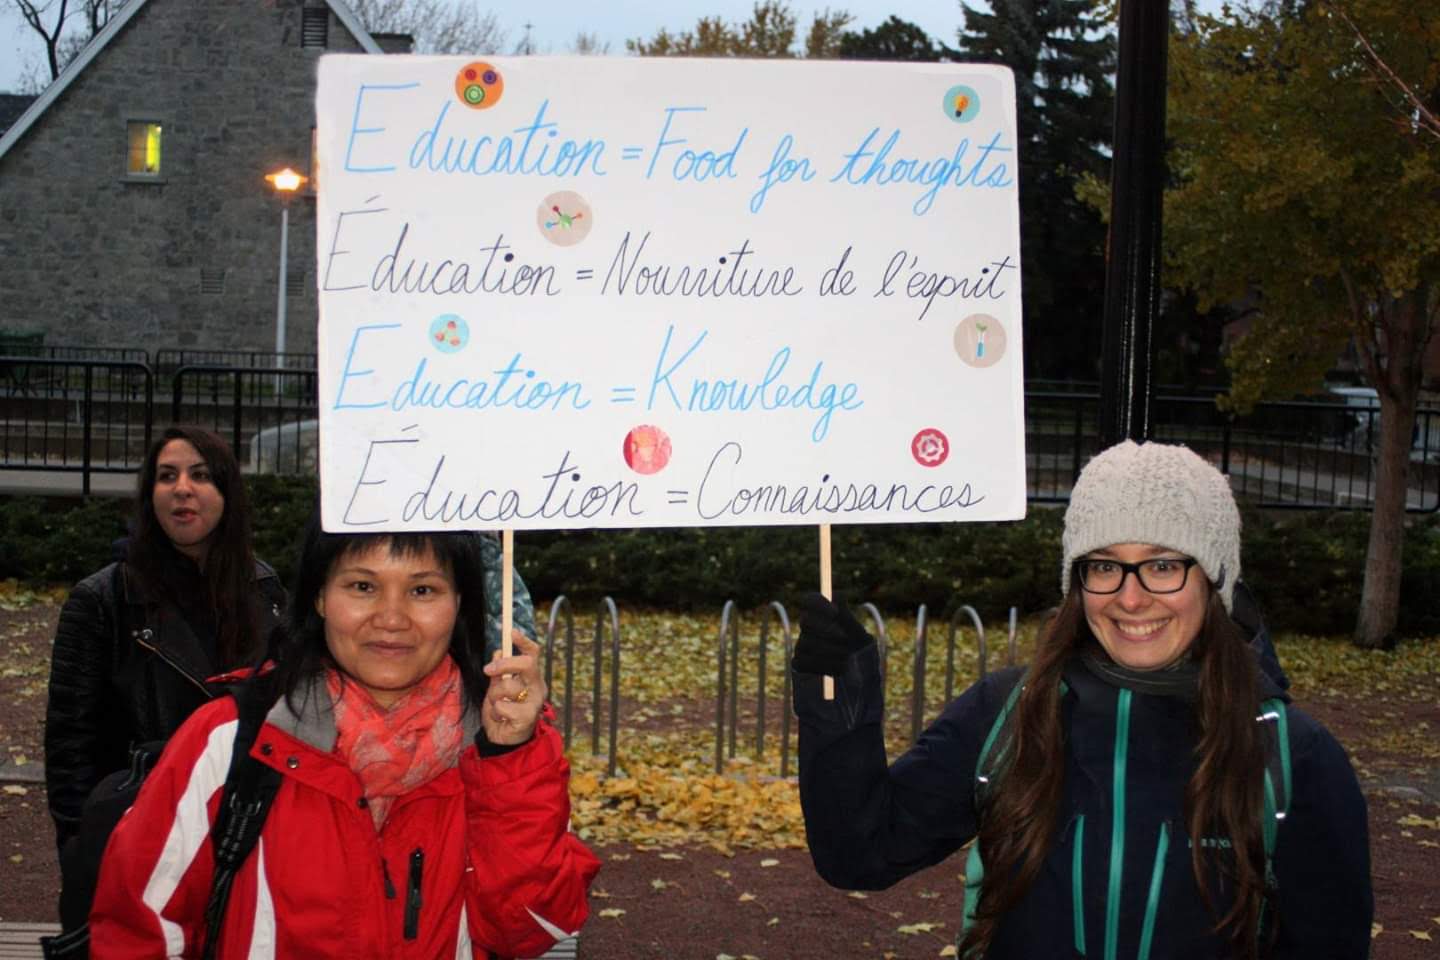 Education = Food for thoughts
Éducation = Nourriture de l'esprit
Education = Knowledge
Éducation = Connaissances